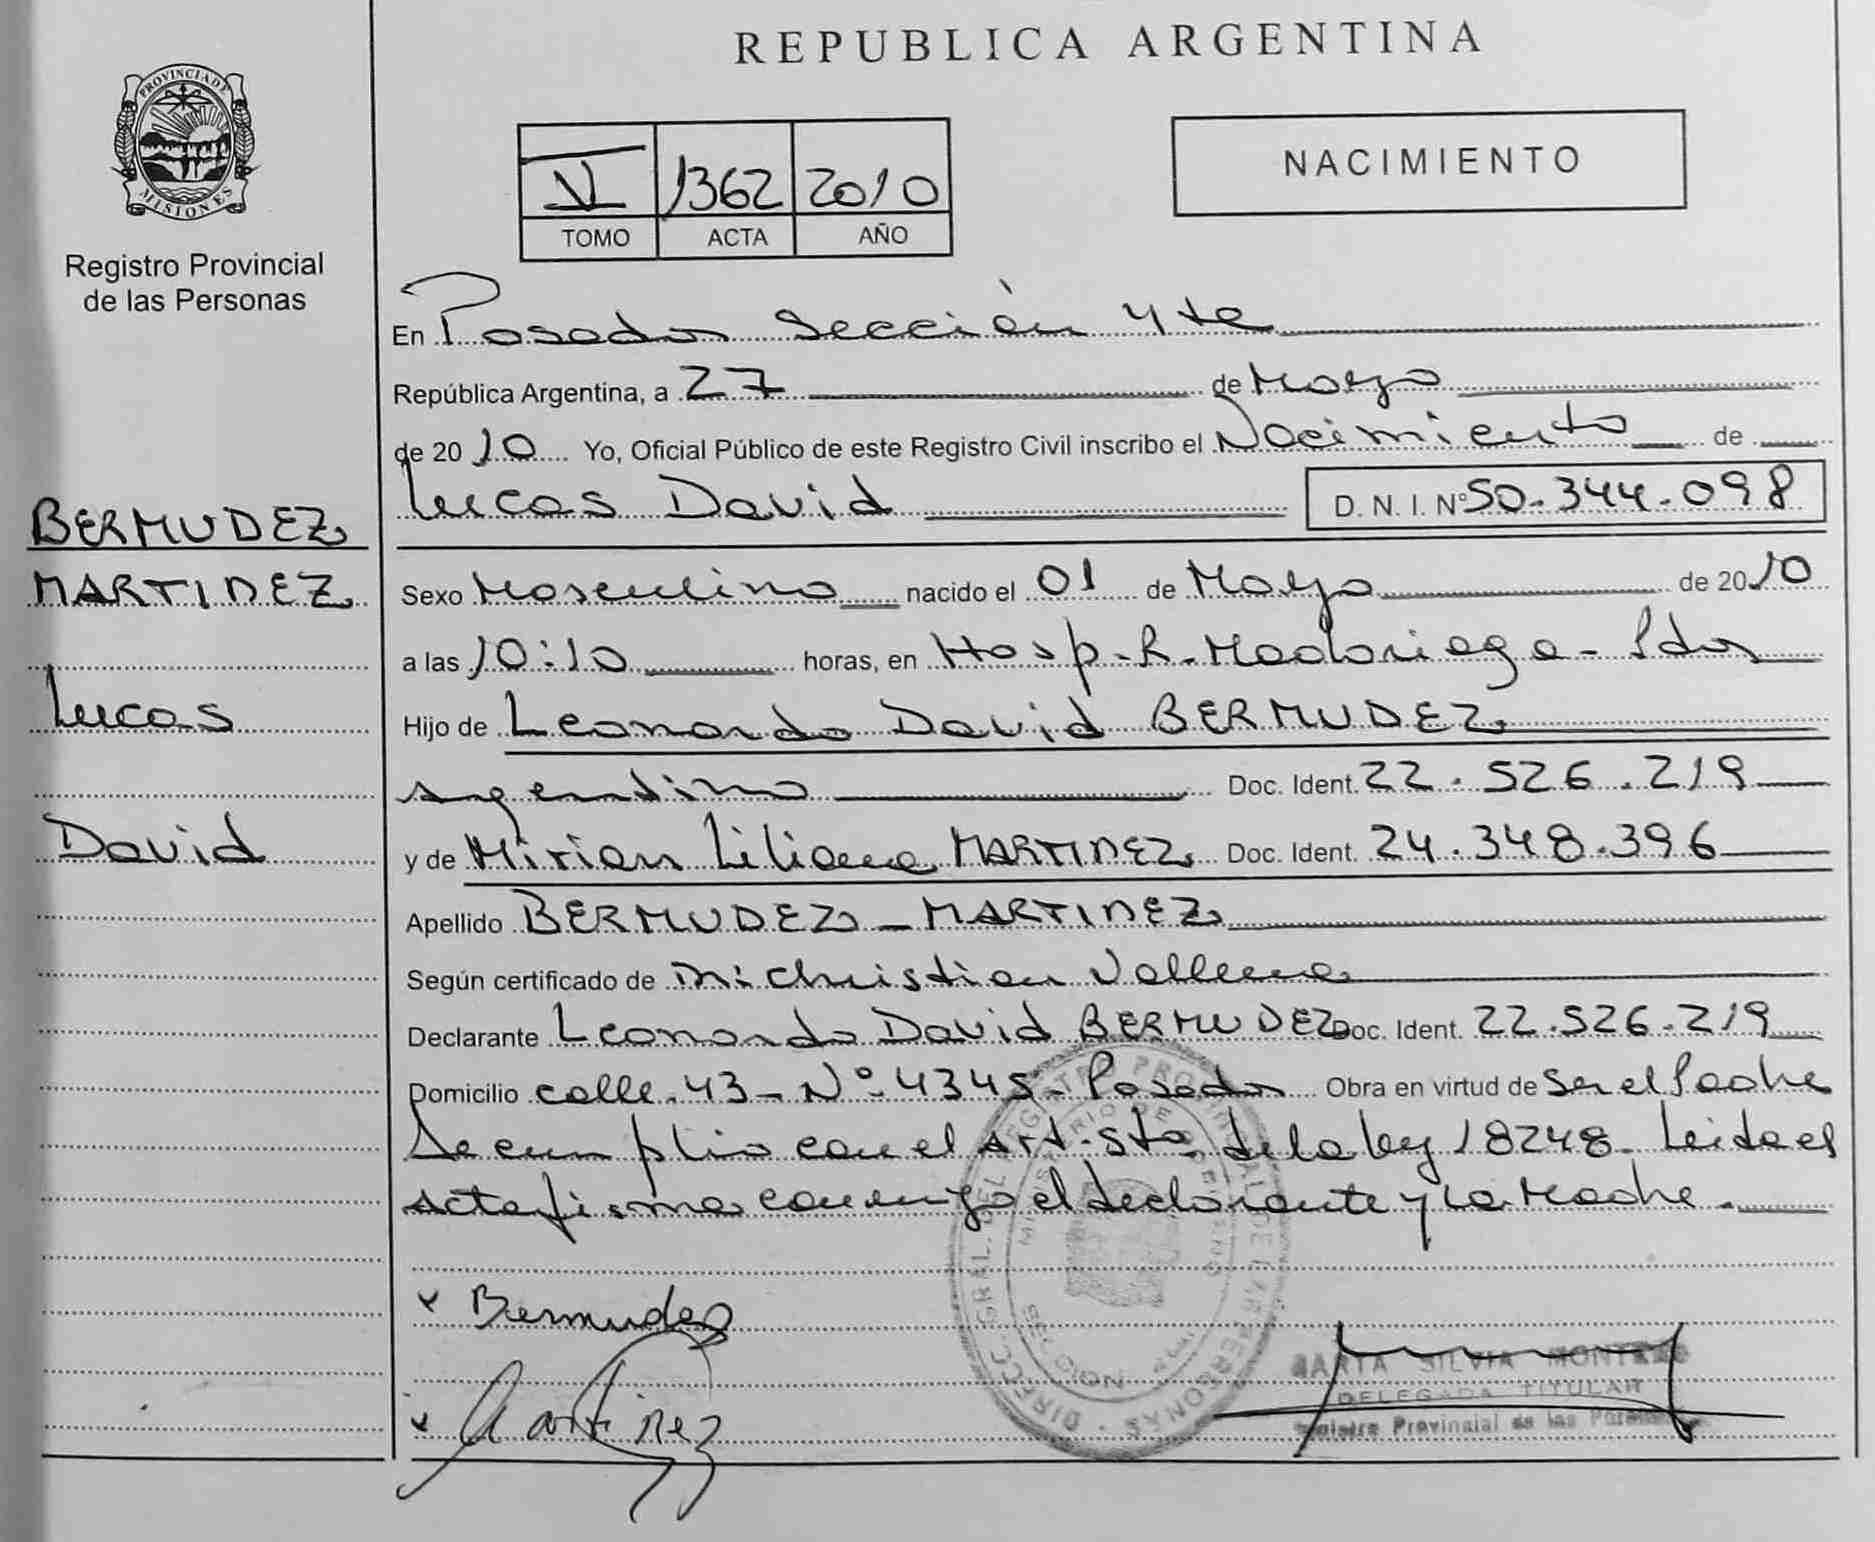 REPUBLICA ARGENTINA
PROVINCIA DE MISIONES
Registro Provincial
de las Personas
V 1362 2010
TOMO ACTA AÑO
NACIMIENTO
En Posadas Sección 4ta
República Argentina, a 27 de Mayo
de 2010 Yo, Oficial Público de este Registro Civil inscribo el Nacimiento de
Lucas David D. N. I. Nº 50.344.098
BERMUDEZ
MARTINEZ
Lucas
David
Sexo Masculino nacido el 01 de Mayo de 2010
a las 10:10 horas, en Hosp. R. Madariaga - Pdas
Hijo de Leonardo David BERMUDEZ
argentino Doc. Ident. 22.526.219
y de Mirian Liliana MARTINEZ Doc. Ident. 24.348.396
Apellido BERMUDEZ - MARTINEZ
Según certificado de Christian
Declarante Leonardo David BERMUDEZ Doc. Ident. 22.526.219
Domicilio calle 43 - Nº 4345 - Posadas Obra en virtud de Ser el Padre
Se cumplio con el Art. 5to de la ley 18248. Leida el
acta firma conmigo el declarante y la Madre.
x Bermudez
x Martinez
DELEGADA TITULAR
Registro Provincial de las Personas